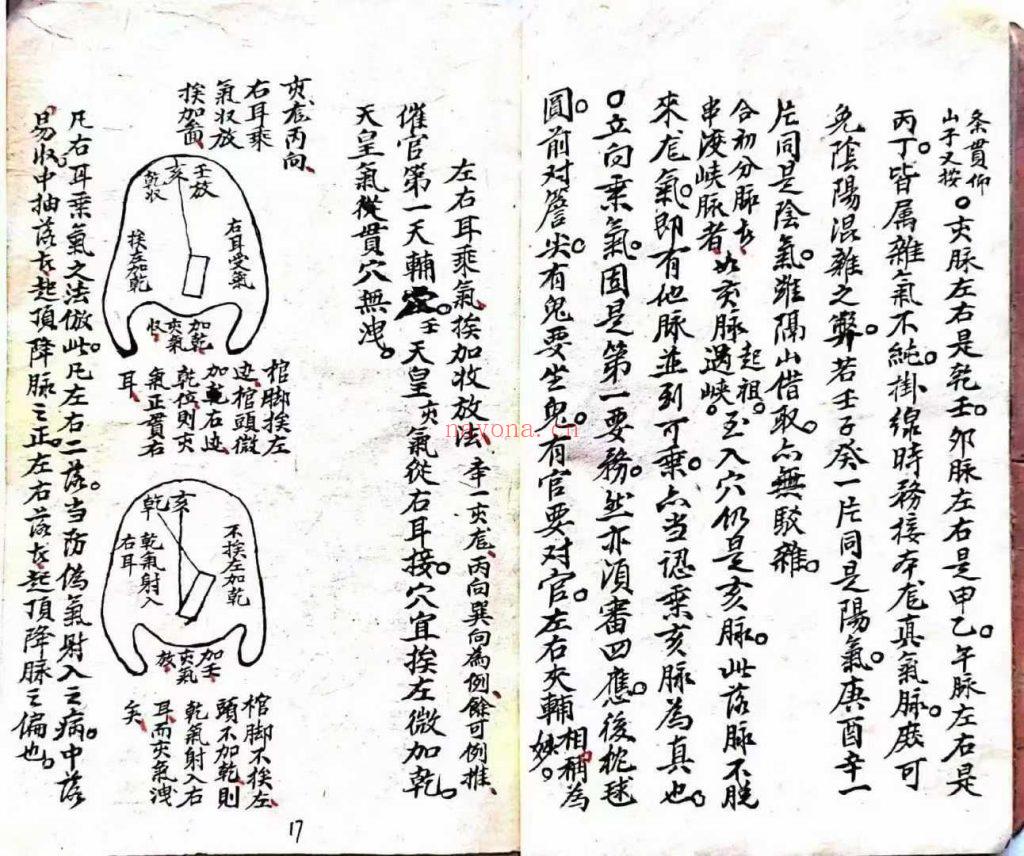 条貫仰
山子又按
○亥脉左右是乾壬。卯脉左右是甲乙。午脉左右是
丙丁。皆属雜氣不純。掛線時務接本龙真氣脉。庶可
免陰陽混雜之弊。若壬子癸一片同是陽氣。庚酉辛一
片同是陰氣。雖隔山借取。亦無駁雜。
合初分脉
串渡峡脉者、如亥脉起祖。遇峡。至入穴仍是亥脉。此落脉不脱
來龙氣。即有他脉並列可乘。亦当認乘亥脉為真也。
○立向乘氣。固是第一要務。然亦須審四應。後枕球
圓。前对簷尖。有鬼要坐鬼。有官要对官。左右夾輔相稱為
妙。
左右耳乘氣、挨加收放法、
亥龙、丙向巽向為例、餘可例推、
催官第一天輔壬。天皇亥氣從右耳接。穴宜挨左微加乾
天皇氣從貫穴無洩。
亥龙丙向
右耳乘
氣收放
挨加畐
亥
壬放
乾收
右耳受氣
挨左加乾
加乾
亥氣
收
棺脚挨左
边、棺頭微
加右边
乾位則亥
氣正貫右
耳
亥
乾
不挨左加乾
乾氣射入
右耳
加壬
亥氣
放
棺脚不挨左
頭不加乾則
乾氣射入右
耳而亥氣洩
矣
凡右耳乘氣之法倣此。凡左右二落。当防偽氣射入之病。中落
易收。中抽落、起頂降脉之正。左右落、起頂降脉之偏
也。
17
nayona.cn